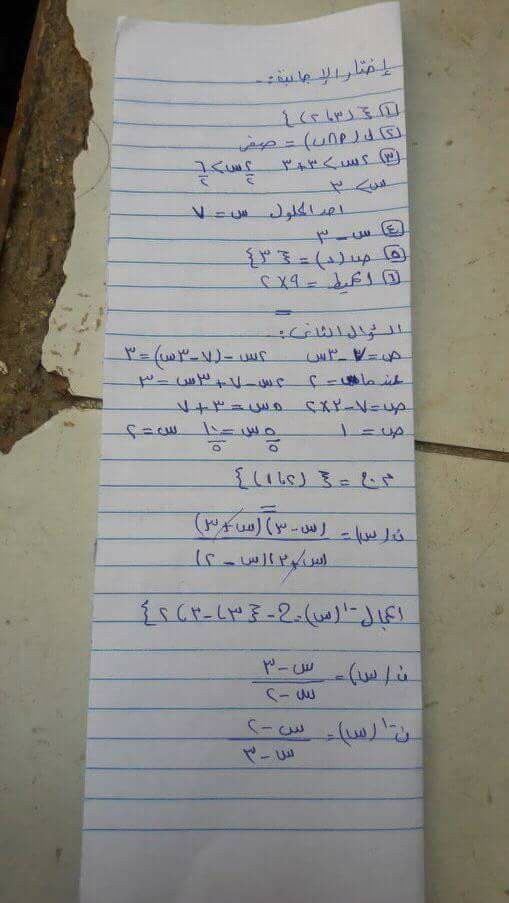 إختار الإجابة :-
١ { (٣ ، ٢) }
٢ ل (٢ ∩ ب) = صفر
٣ ٢س > ٣ + ٣ ٢س/٢ > ٦/٢
س > ٣
احد الحلول س = ٧
٤ س - ٣
٥ ص(د) = { ٣ }
٦ المحيط = ٩ × ٢
السؤال الثاني :-
ص = ٧ - ٣س ٢س - (٧ - ٣س) = ٣
عندما س = ٢ ٢س - ٧ + ٣س = ٣
ص = ٧ - ٣ × ٢ ٥س = ٣ + ٧
ص = ١ ٥س/٥ = ١٠/٥ س = ٢
م.ح = { (٢ ، ١) }
ن(س) = (س - ٣)(س + ٣) / (س + ٣)(س - ٢)
المجال ن-١ (س) = ح - { ٣ ، -٣ ، ٢ }
ن(س) = س - ٣ / س - ٢
ن-١ (س) = س - ٢ / س - ٣